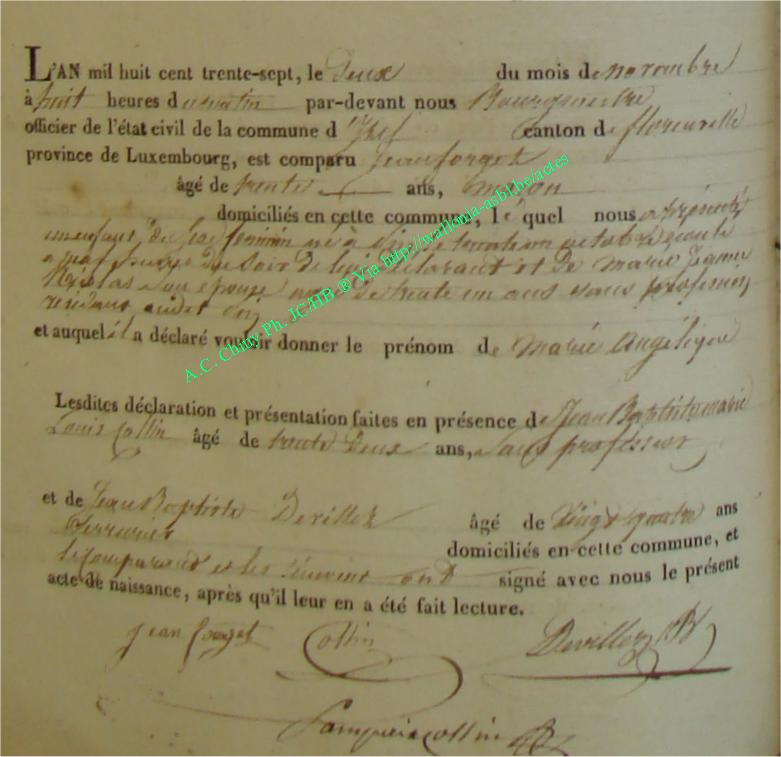 L'AN mil huit cent trente-sept, le Deux du mois de novembre
à huit heures du matin par-devant nous Bourgmestre
officier de l'état civil de la commune d'Izel canton de florenville
province de Luxembourg, est comparu Jean forget
âgé de trente ans, maçon
domiciliés en cette commune, lequel nous a présenté
un enfant de sexe feminin né à Izel le trente un octobre
du soir de lui déclarant et de marie Jeanne
Nicolas son épouse agée de trente un ans sans profession
residant audit
et auquel il a déclaré vouloir donner le prénom de marie Angélique
Lesdites déclaration et présentation faites en présence de Jean Baptiste marie
Louis Collin âgé de trente Deux ans, sans profession
et de Jean Baptiste Devillez âgé de vingt quatre ans
serrurier domiciliés en cette commune, et
le comparant et les témoins ont signé avec nous le présent
acte de naissance, après qu'il leur en a été fait lecture.
jean forget Collin Devillez JB
collin
A.C. Chiny Ph. JC/HB ® Via http://wallonia-asbl.be/actes